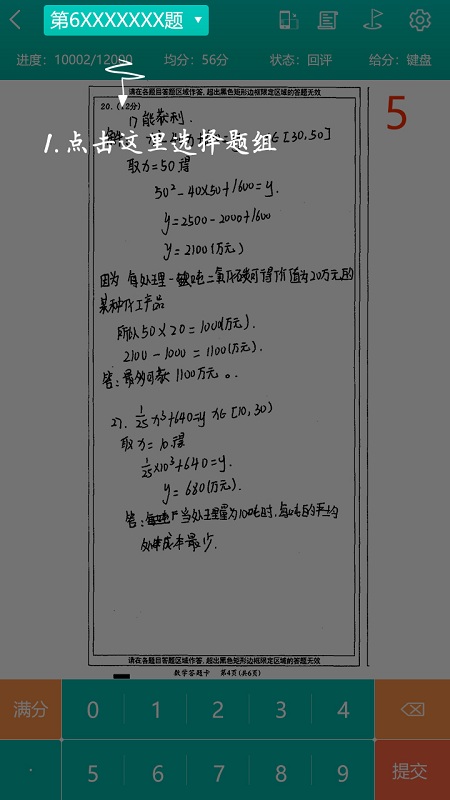 第6XXXXXXX题
进度：10002/12000 均分：56分 状态：回评 给分：键盘
请在各题目答题区域作答,超出黑色矩形边框限定区域的答题无效
20.(12分)
5
1.点击这里选择题组
取x=50得
50²-40×50+1600=y.
y=2500-2000+1600
y=2100(万元)
因为 每处理一吨二氧化碳可得价值为20万元的
某种化工产品
所以50×20=1000(万元).
2100-1000=1100(万元).
答:最多可获1100万元。
27. 1/25 x³+640=y x∈[10,30)
取x=10得
1/25×10³+640=y.
y=680(万元).
答: 当处理量为100吨时,每吨的平均
处理成本最少.
请在各题目答题区域作答,超出黑色矩形边框限定区域的答题无效
数学答题卡 第4页(共6页)
满分 0 1 2 3 4
. 5 6 7 8 9 提交